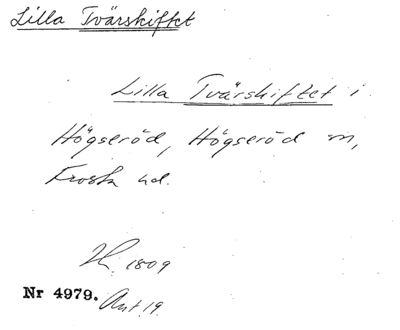 Lilla Tvärskiftet
Lilla Tvärskiftet i
Högseröd, Högseröd sn,
Frosta hd.
1809
Nr 4979. Ant. 19.